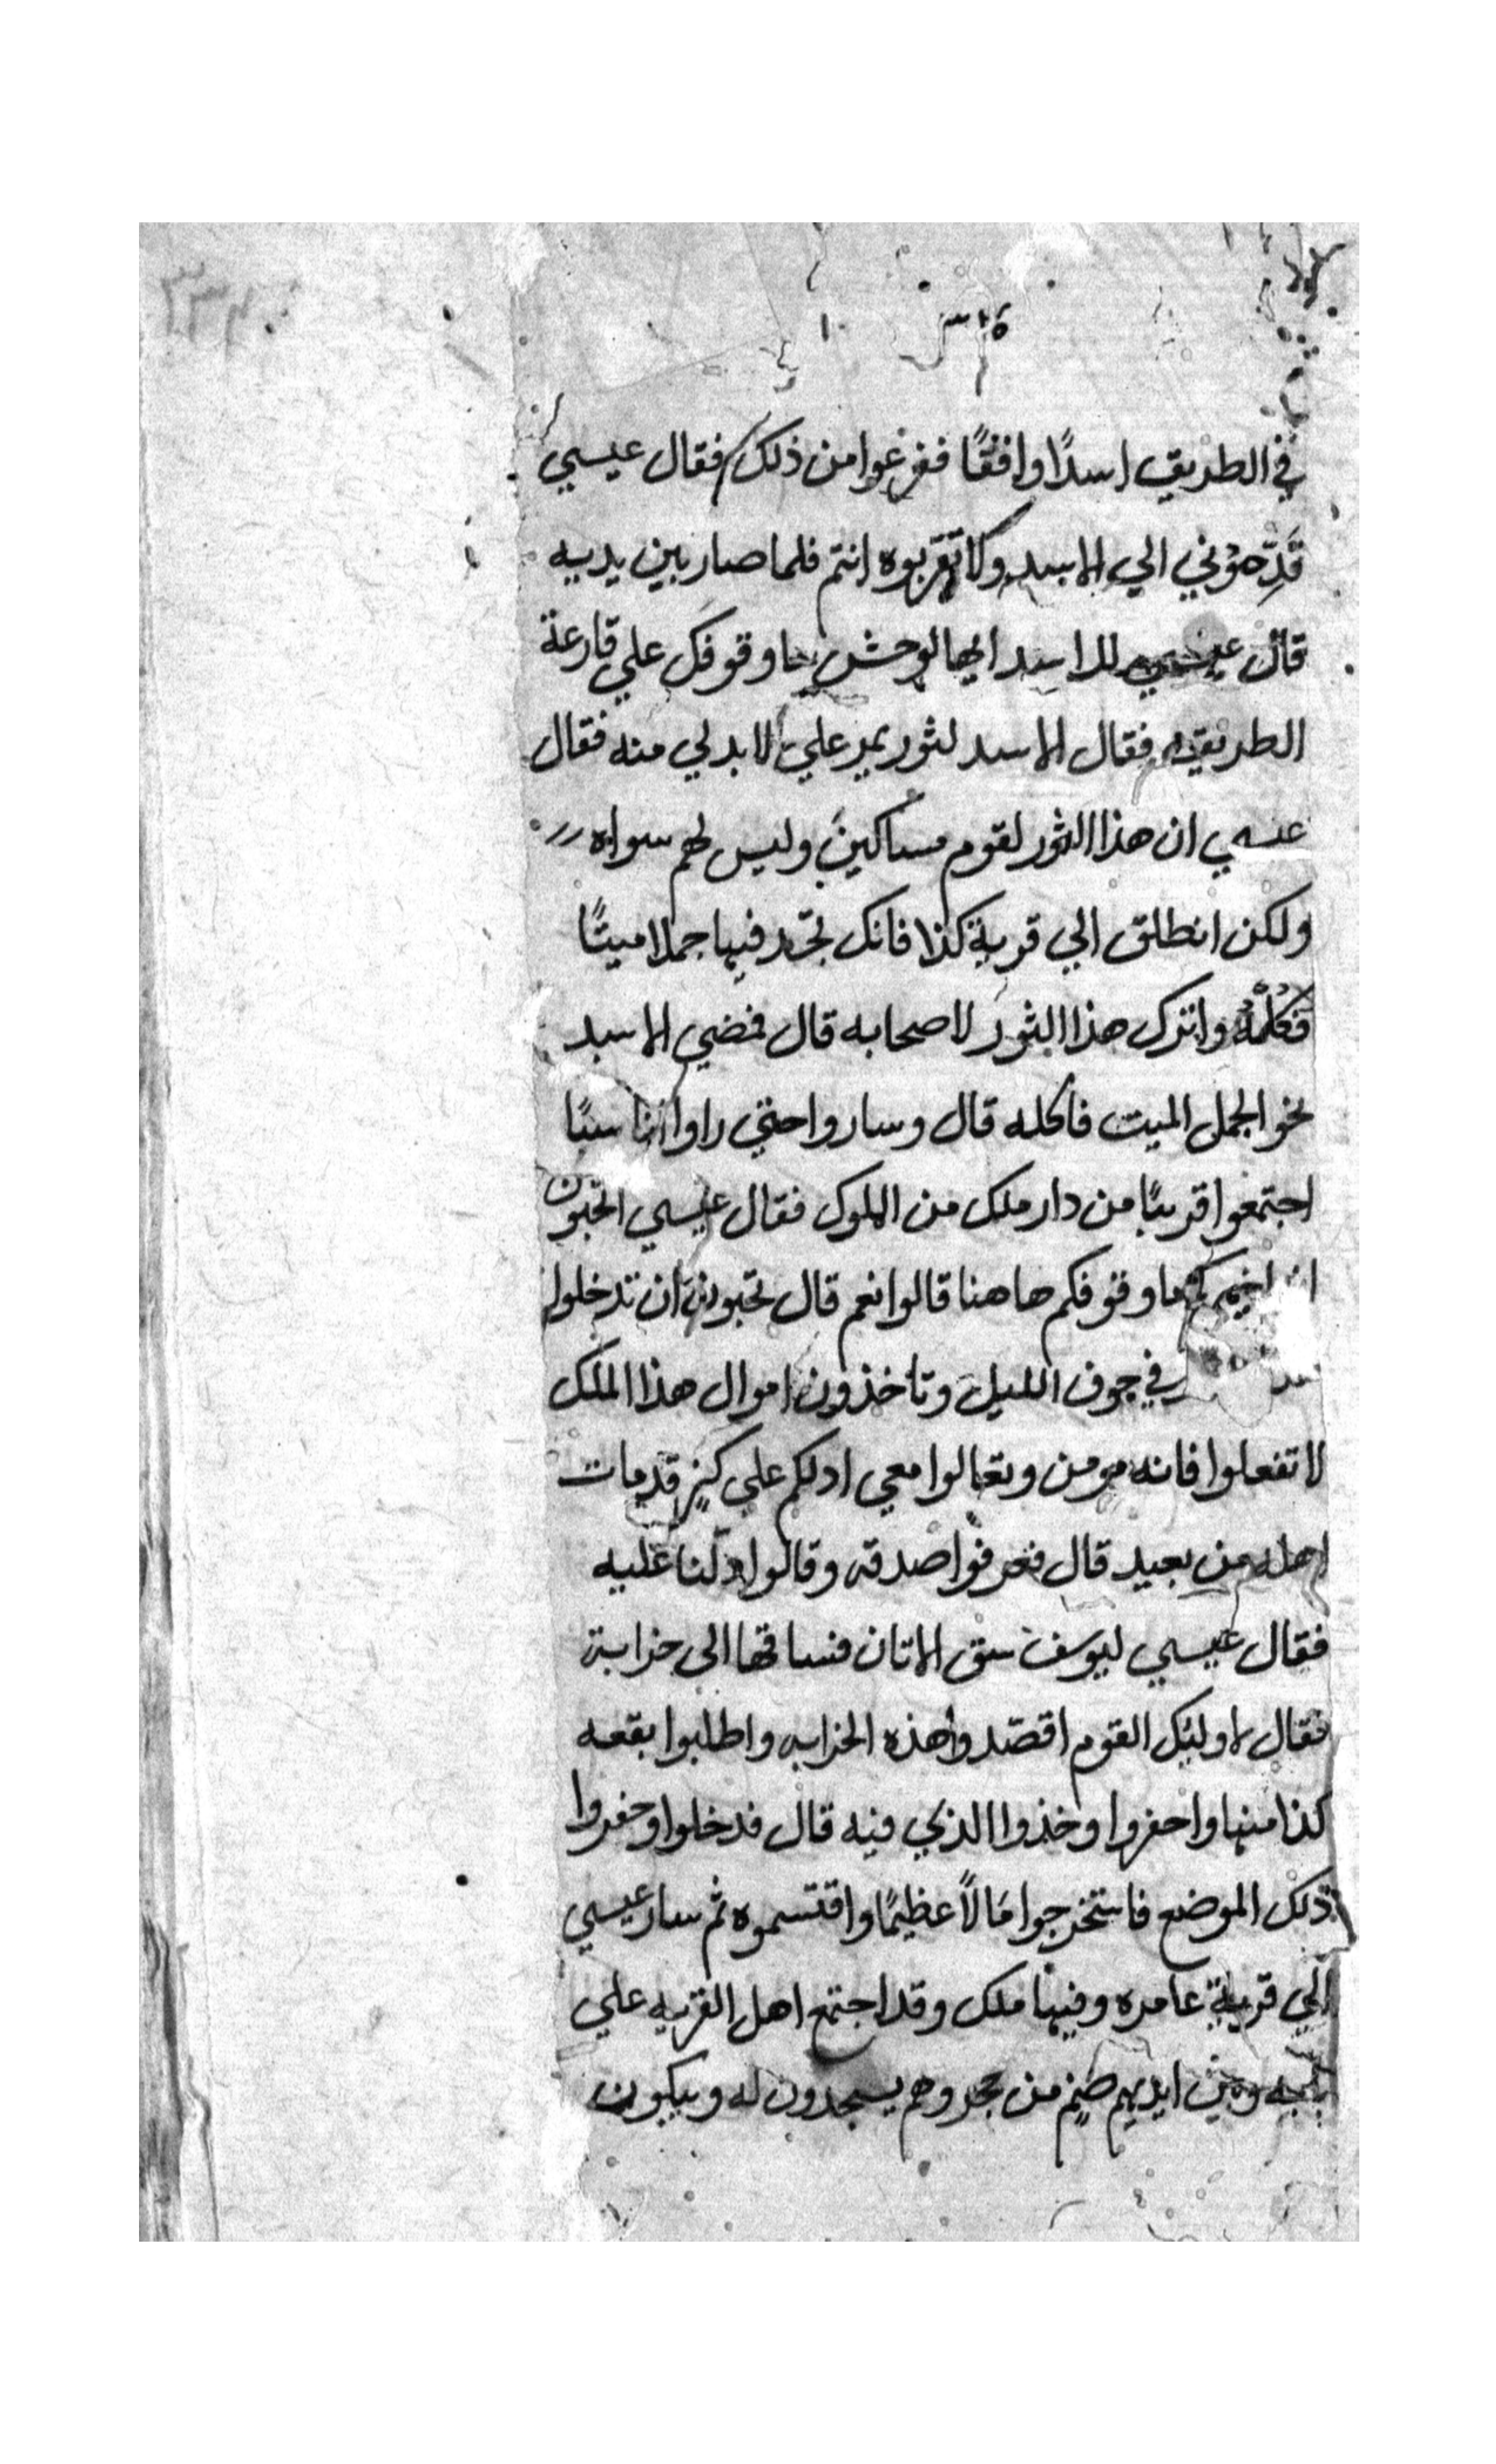 في الطريق اسدًا واقفًا ففزعوا من ذلك فقال عيسي
قَدِّموني الي الاسد ولا تقربوه انتم فلما صار بين يديه
قال عيسي للاسد ايها الوحش ما وقوفك علي قارعة
الطريق فقال الاسد لثور يمر علي لا بد لي منه فقال
عيسي ان هذا الثور لقوم مساكين وليس لهم سواه
ولكن انطلق الي قرية كذا فانك تجد فيها جملا ميتًا
فكله واترك هذا الثور لاصحابه قال فمضي الاسد
نحو الجمل الميت فاكله قال وساروا حتي راوا اناسًا
اجتمعوا قريبًا من دار ملك من الملوك فقال عيسي اتحبون
ان اخبركم ما وقوفكم هاهنا قالوا نعم قال تحبون ان تدخلوا
في جوف الليل وتاخذون اموال هذا الملك
لا تفعلوا فانه مومن وتعالوا معي ادلكم علي كنز قد مات
اهله من بعيد قال فعرفوا صدقه وقالوا دلنا عليه
فقال عيسي ليوسف سق الاتان فساقها الى خرابة
فقال لاوليك القوم اقصدوا هذه الخرابه واطلبوا بقعه
كذا منها واحفروا وخذوا الذي فيه قال فدخلوا وحفروا
ذلك الموضع فاستخرجوا مَالاً عظيمًا واقتسموه ثم سار عيسي
الي قرية عامره وفيها ملك وقد اجتمع اهل القريه علي
بابه وبين ايديهم صنم من حجر وهم يسجدون له ويبكون